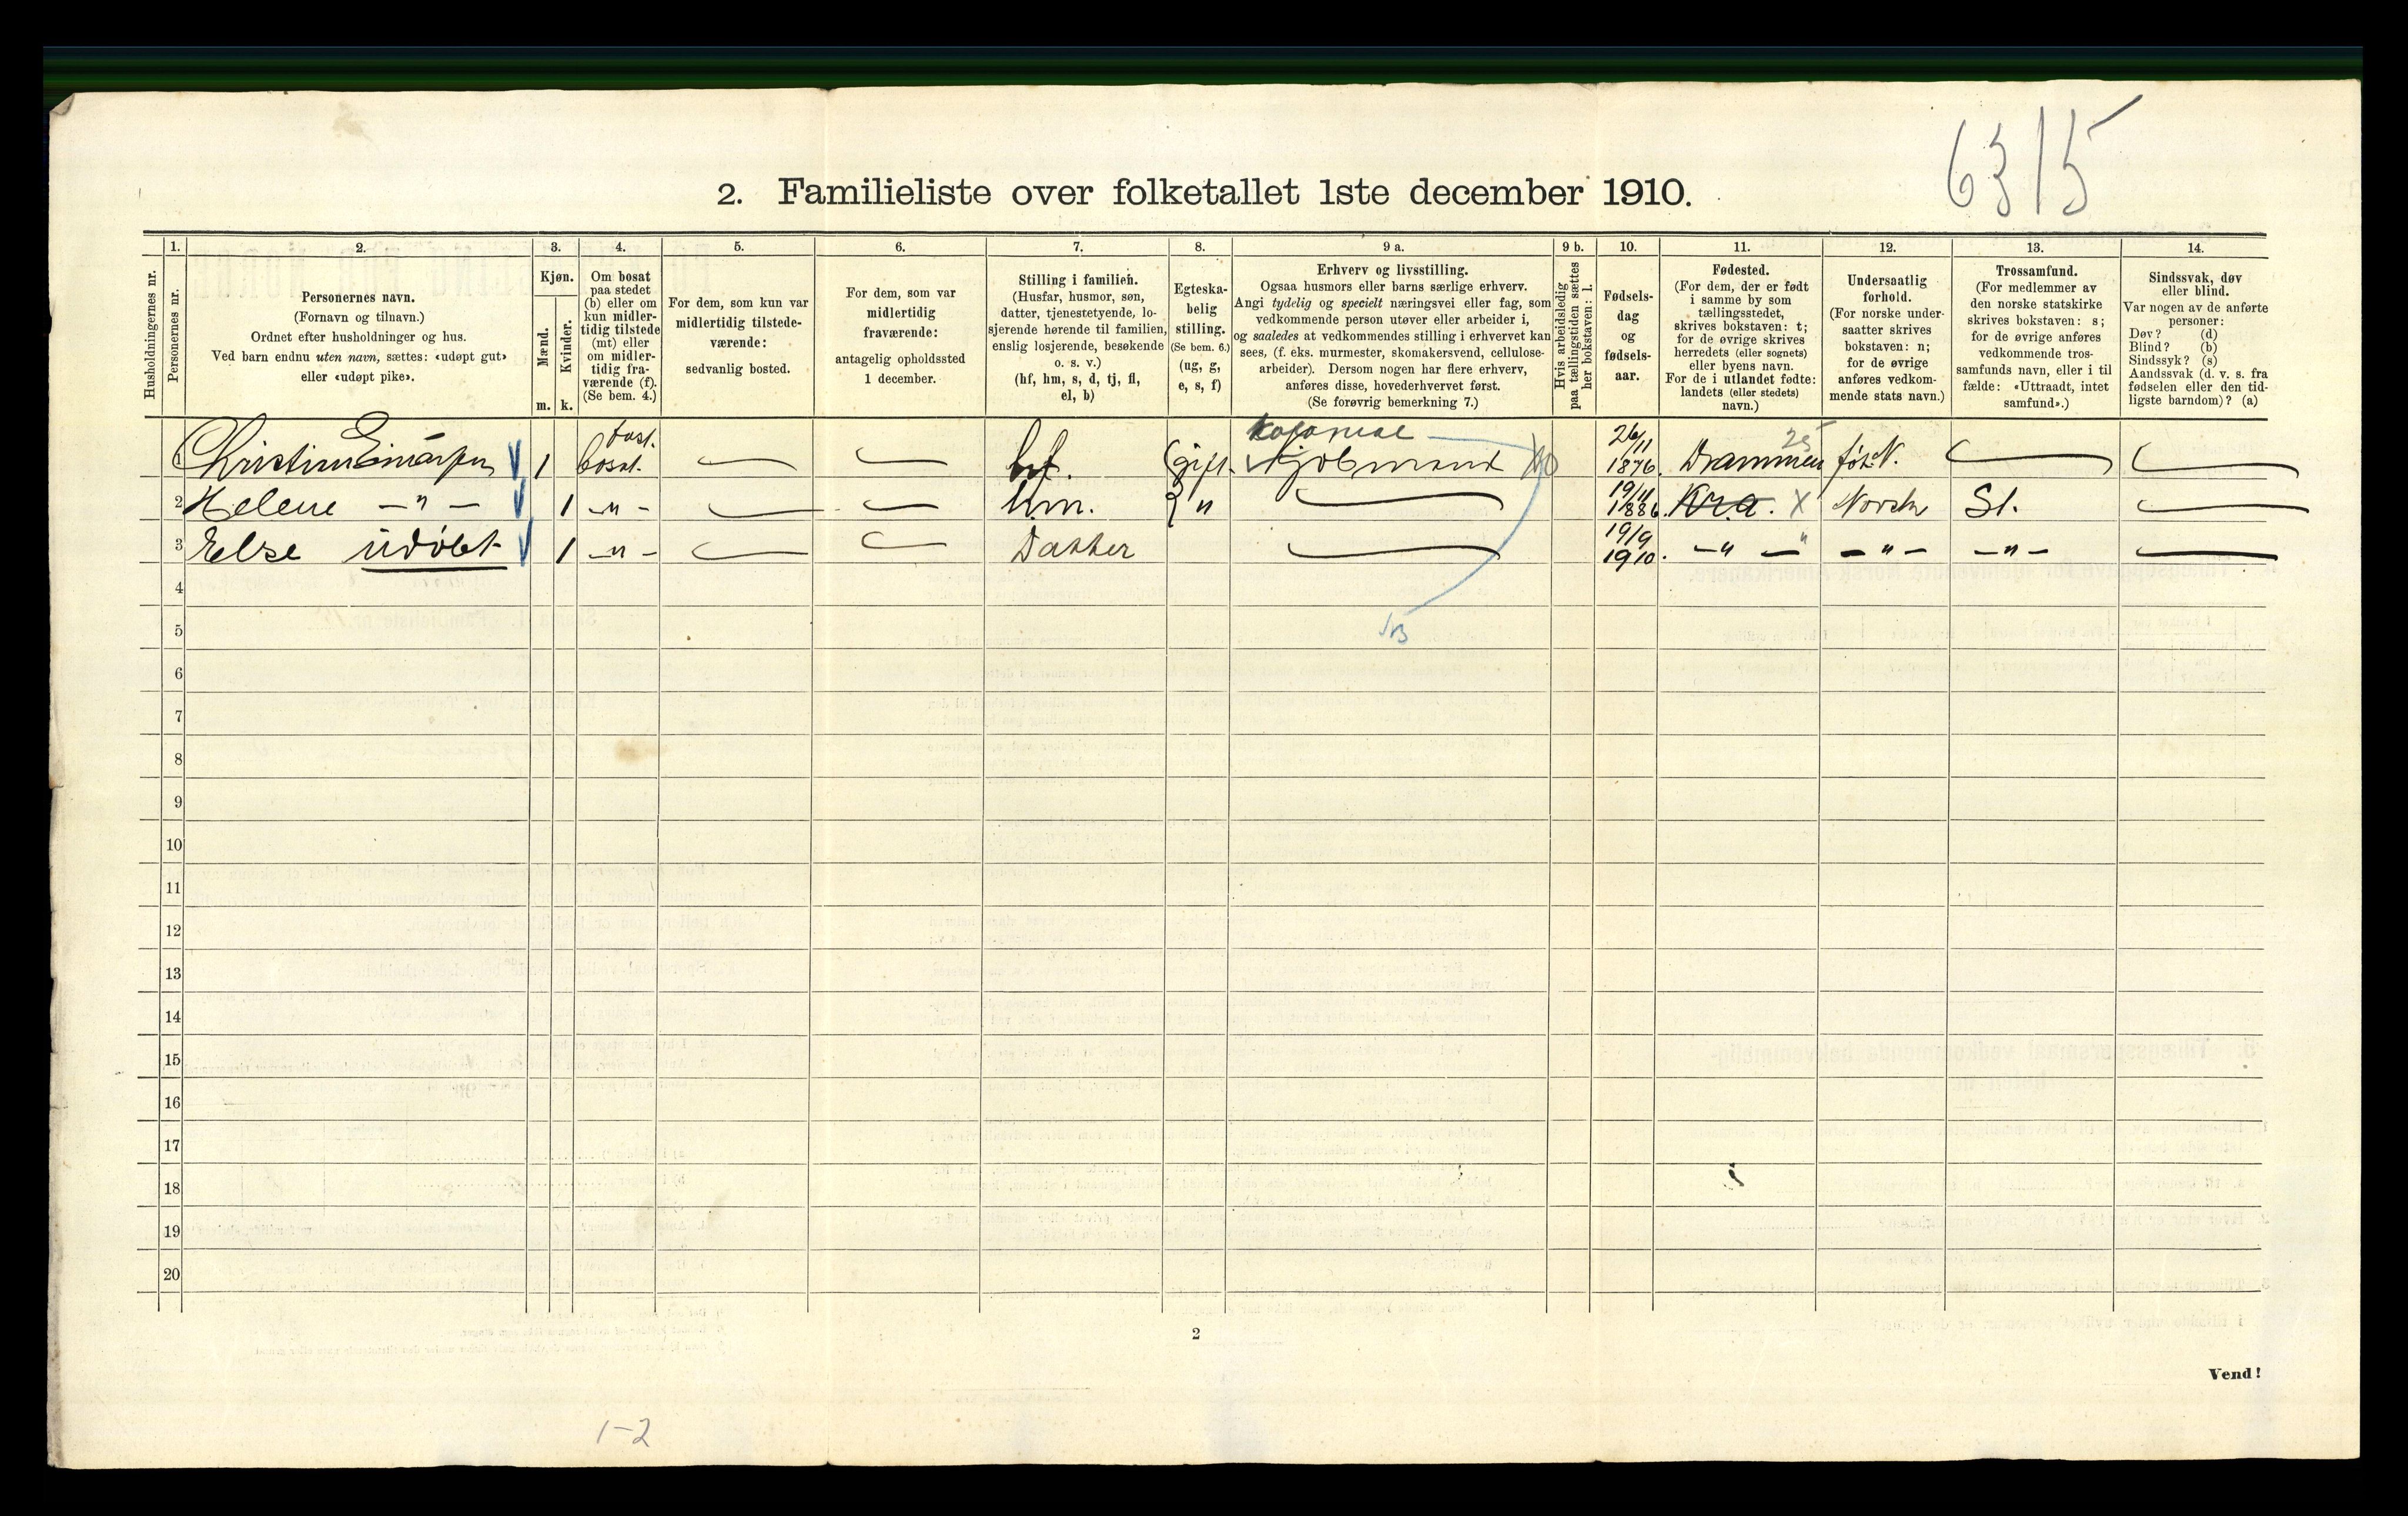 6315
2. Familieliste over folketallet 1ste december 1910.
1. 2. 3. 4. 5. 6. 7. 8. 9 a. 9 b. 10. 11. 12. 13. 14.
Husholdningernes nr.
Personernes nr.
Personernes navn.
(Fornavn og tilnavn.)
Ordnet efter husholdninger og hus.
Ved barn endnu uten navn, sættes: «udøpt gut»
eller «udøpt pike».
Kjøn.
Mænd.
Kvinder.
m. k.
Om bosat
paa stedet
(b) eller om
kun midler-
tidig tilstede
(mt) eller
om midler-
tidig fra-
værende (f).
(Se bem. 4.)
For dem, som kun var
midlertidig tilstede-
værende:
sedvanlig bosted.
For dem, som var
midlertidig
fraværende:
antagelig opholdssted
1 december.
Stilling i familien.
(Husfar, husmor, søn,
datter, tjenestetyende, lo-
sjerende hørende til familien,
enslig losjerende, besøkende
o. s. v.)
(hf, hm, s, d, tj, fl,
el, b)
Egteska-
belig
stilling.
(Se bem. 6.)
(ug, g,
e, s, f)
Erhverv og livsstilling.
Ogsaa husmors eller barns særlige erhverv.
Angi tydelig og specielt næringsvei eller fag, som
vedkommende person utøver eller arbeider i,
og saaledes at vedkommendes stilling i erhvervet kan
sees, (f. eks. murmester, skomakersvend, cellulose-
arbeider). Dersom nogen har flere erhverv,
anføres disse, hovederhvervet først.
(Se forøvrig bemerkning 7.)
Hvis arbeidsledig
paa tællingstiden sættes
her bokstaven: l.
Fødsels-
dag
og
fødsels-
aar.
Fødested.
(For dem, der er født
i samme by som
tællingsstedet,
skrives bokstaven: t;
for de øvrige skrives
herredets (eller sognets)
eller byens navn.
For de i utlandet fødte:
landets (eller stedets)
navn.)
Undersaatlig
forhold.
(For norske under-
saatter skrives
bokstaven: n;
for de øvrige
anføres vedkom-
mende stats navn.)
Trossamfund.
(For medlemmer av
den norske statskirke
skrives bokstaven: s;
for de øvrige anføres
vedkommende tros-
samfunds navn, eller i til
fælde: «Uttraadt, intet
samfund».)
Sindssvak, døv
eller blind.
Var nogen av de anførte
personer:
Døv? (d)
Blind? (b)
Sindssyk? (s)
Aandssvak (d. v. s. fra
fødselen eller den tid-
ligste barndom)? (a)
Kolonial 26/11 25
1 bosat. hf. gift. Kjøbmand 1876. Drammen N.
2 Helene —"— 1 —"— hm. " 19/11 1886. Kra. X Norsk St.
3 Else udøbt 1 —"— Datter 19/9 1910. —"— —"— —"—
4
5
6
7
8
9
10
11
12
13
14
15
16
17
18
19
20
2
Vend!
1-2